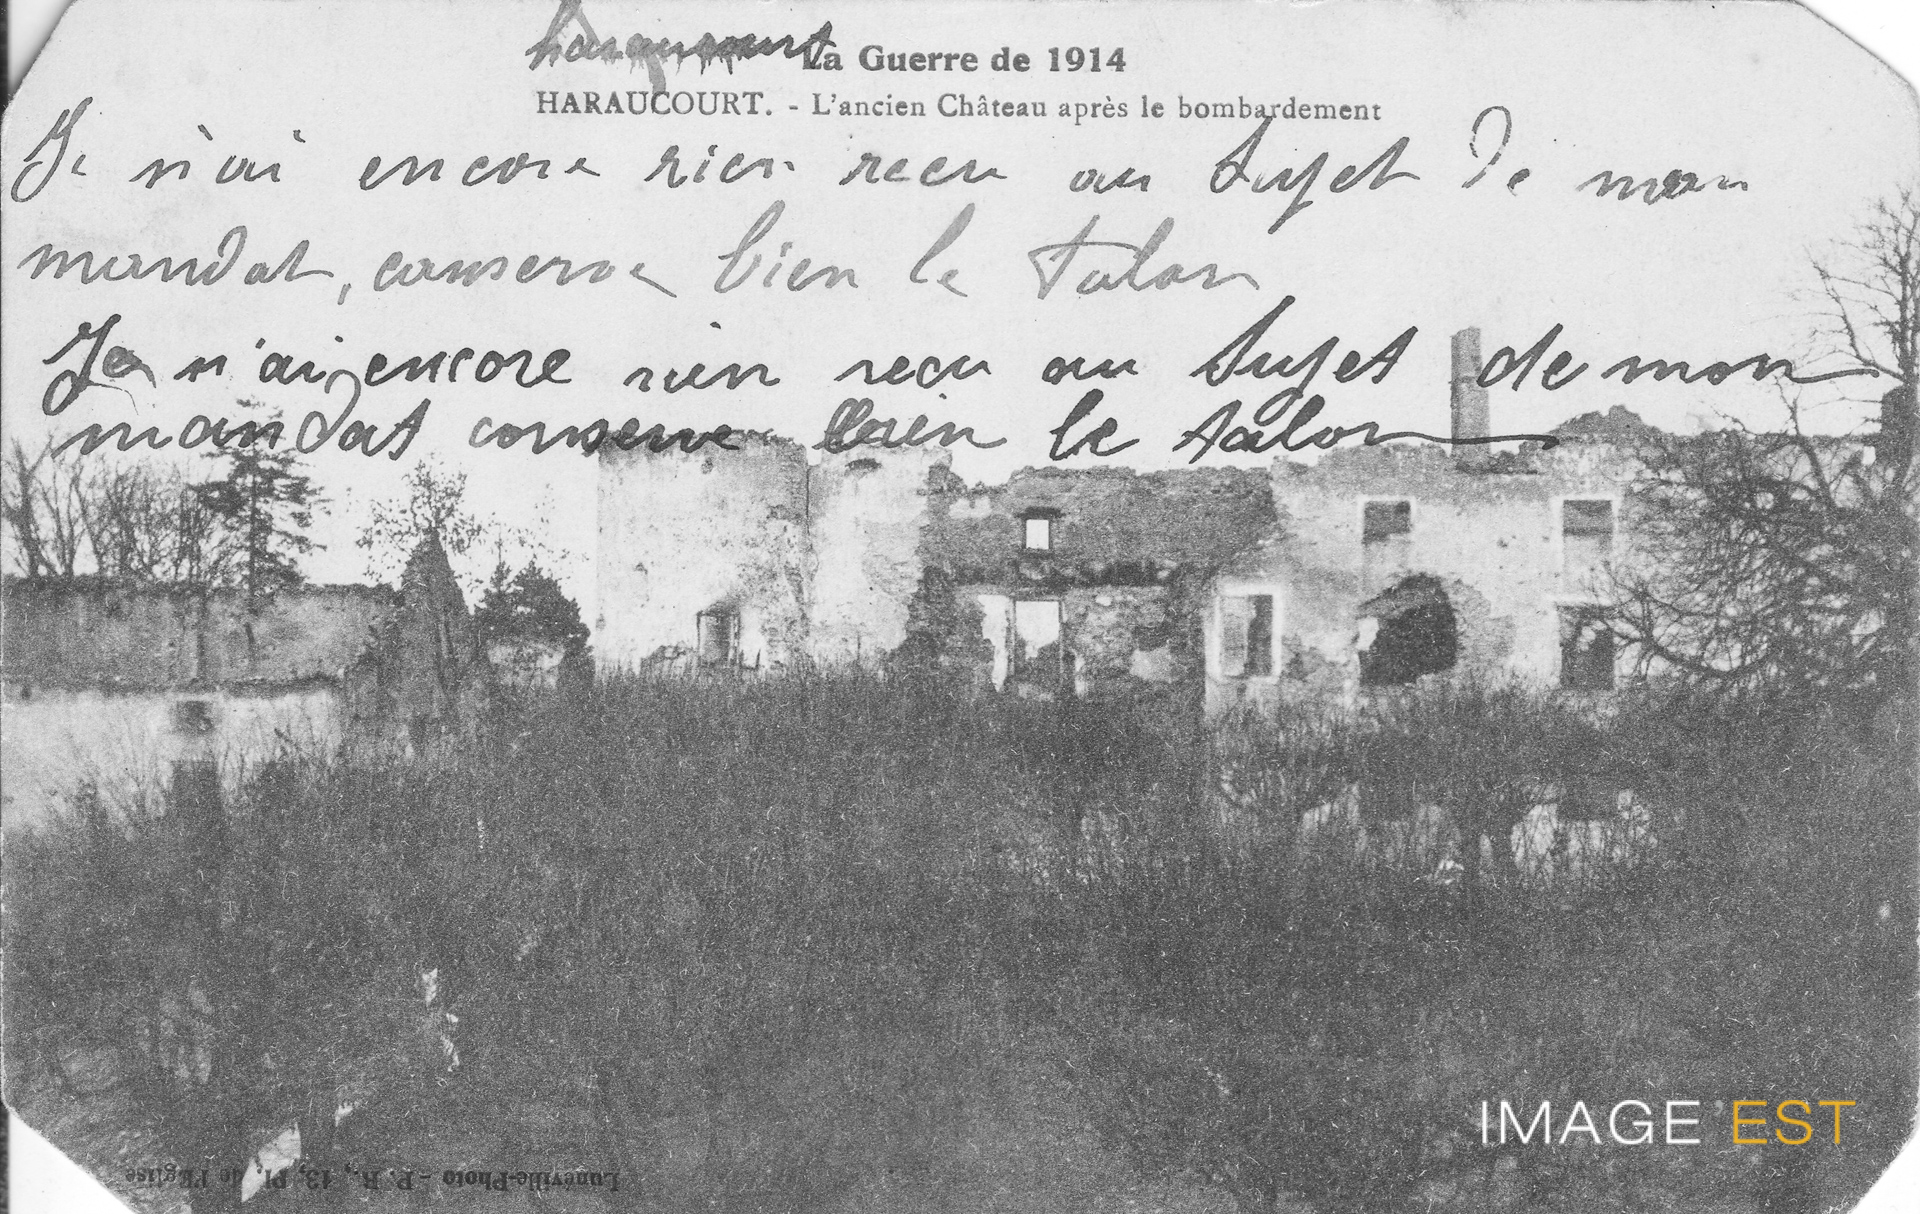 haraucourt
La Guerre de 1914
HARAUCOURT. - L'ancien Château après le bombardement
Je n'ai encore rien recu au Sujet de mon
mandat, conserve bien le talon
Je n'ai encore rien recu au Sujet de mon
mandat conserve bien le talon
IMAGE EST
Lunéville-Photo - P. R., 13, Pl. de l'Eglise